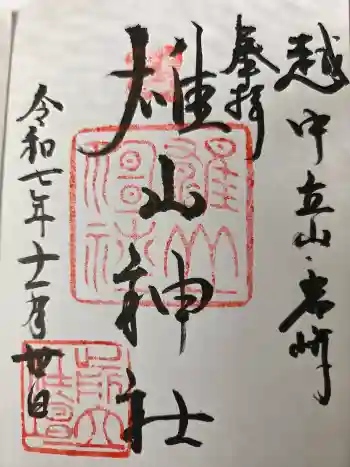 越中立山・岩峅
奉拝
雄山神社
令和七年十一月廿日
雄山神社